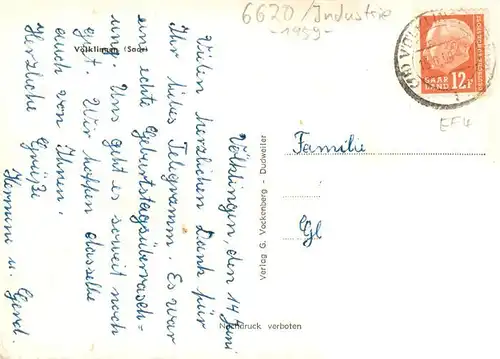 6620/Industrie
-1959-
SAAR
LAND
12F
DEUTSCHE BUNDESPOST
EF4
Völklingen (Saar)
Völklingen, den 14 Juni
Vielen herzlichen Dank für
Ihr liebes Telegramm. Es war
eine echte Geburtstagsüberrasch=
ung. Uns geht es soweit noch
gut. Wir hoffen dasselbe
auch von Ihnen.
Herzliche Grüße
Hermine u. Gerd.
Verlag G. Vockenberg - Dudweiler
Nachdruck verboten
Familie
Gl